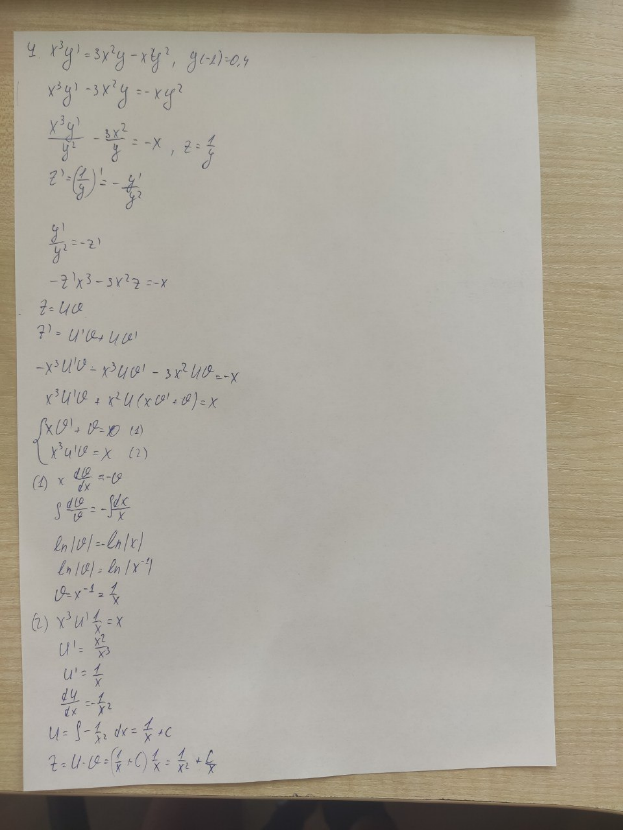 4 x³y' = 3x²y - x²y², y(-1)=0,4
x³y' - 3x²y = -xy²
x³y'/y² - 3x²/y = -x, z = 1/y
z' = (1/y)' = - y'/y²
y'/y² = -z'
-z'x³ - 3x²z = -x
z = uv
z' = u'v + uv'
-x³u'v - x³uv' - 3x²uv = -x
x³u'v + x²u(xv' + v) = x
{ xv' + v = 0 (1)
x³u'v = x (2)
(1) x dv/dx = -v
∫ dv/v = -∫ dx/x
ln|v| = -ln|x|
ln|v| = ln|x⁻¹|
v = x⁻¹ = 1/x
(2) x³u' 1/x = x
u' = x²/x³
u' = 1/x
du/dx = - 1/x²
u = ∫ - 1/x² dx = 1/x + C
z = u·v = (1/x + C) 1/x = 1/x² + C/x